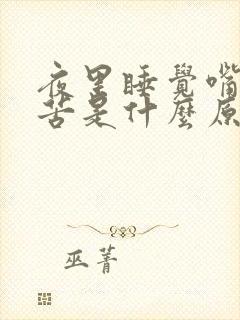 夜里睡覺嘴
苦是什麼原
巫菁